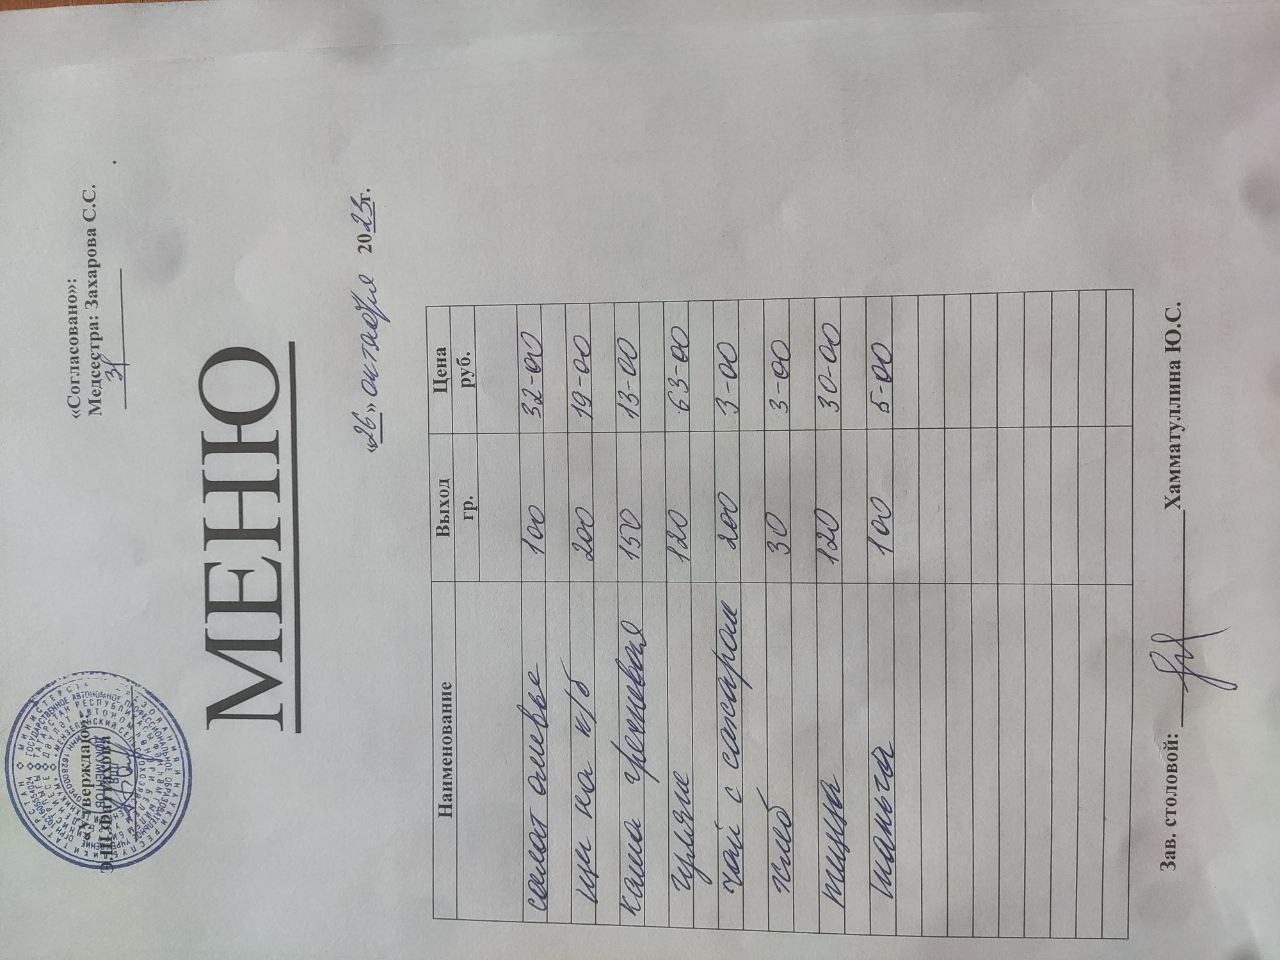 «Утверждаю»
«Согласовано»:
Медсестра: Захарова С.С.
МЕНЮ
«26» октября 2023г.
Наименование Выход гр. Цена руб.
салат оливье 100 32-00
щи на к/б 200 19-00
каша гречневая 150 13-00
гуляш 120 63-00
чай с сахаром 200 3-00
хлеб 30 3-00
пицца 120 30-00
шаньга 100 5-00
Зав. столовой: Хамматуллина Ю.С.